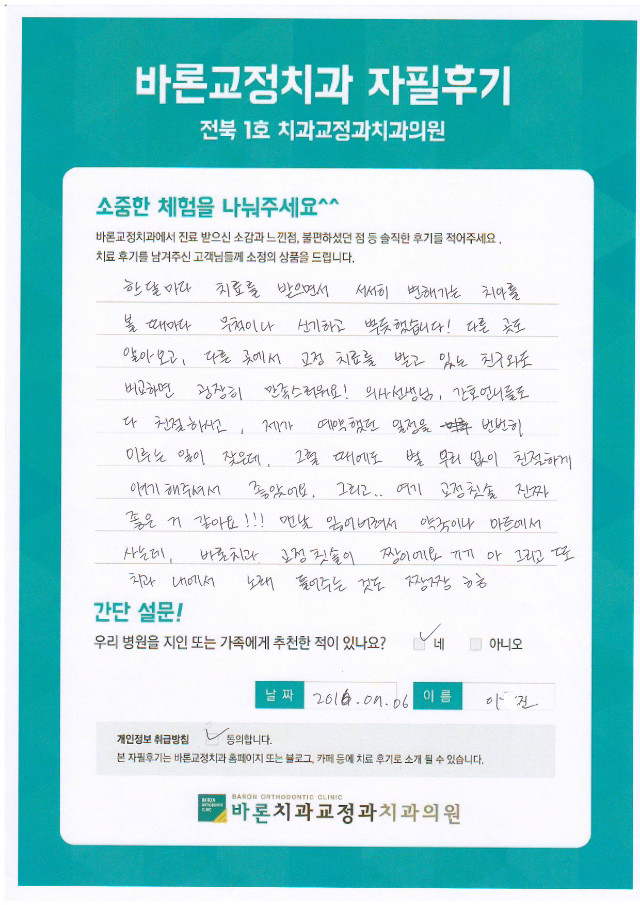 바론교정치과 자필후기
전북 1호 치과교정과치과의원
소중한 체험을 나눠주세요^^
바론교정치과에서 진료 받으신 소감과 느낀점, 불편하셨던 점 등 솔직한 후기를 적어주세요.
치료 후기를 남겨주신 고객님들께 소정의 상품을 드립니다.
한달마다 치료를 받으면서 서서히 변해가는 치아를
볼 때마다 무척이나 신기하고 뿌듯했습니다! 다른 곳도
알아보고, 다른 곳에서 교정 치료를 받고 있는 친구와도
비교하면 굉장히 만족스러워요! 의사선생님, 간호언니들도
다 친절하시고, 제가 예약했던 일정을 번번히
미루는 일이 잦은데, 그럴 때에도 별 무리 없이 친절하게
얘기해주셔서 좋았어요. 그리고.. 여기 교정칫솔 진짜
좋은 거 같아요!!! 맨날 잃어버려서 약국이나 마트에서
사는데, 바른치과 교정칫솔이 짱이에요 ㄲㄲ 아 그리고 또
치과 내에서 노래 틀어주는 것도 짱짱 ㅎㅎ
간단 설문!
우리 병원을 지인 또는 가족에게 추천한 적이 있나요? ✓ 네 아니오
날 짜 2016.09.06 이 름 진
개인정보 취급방침 ✓ 동의합니다.
본 자필후기는 바론교정치과 홈페이지 또는 블로그, 카페 등에 치료 후기로 소개 될 수 있습니다.
BARON ORTHODONTIC CLINIC
바론치과교정과치과의원